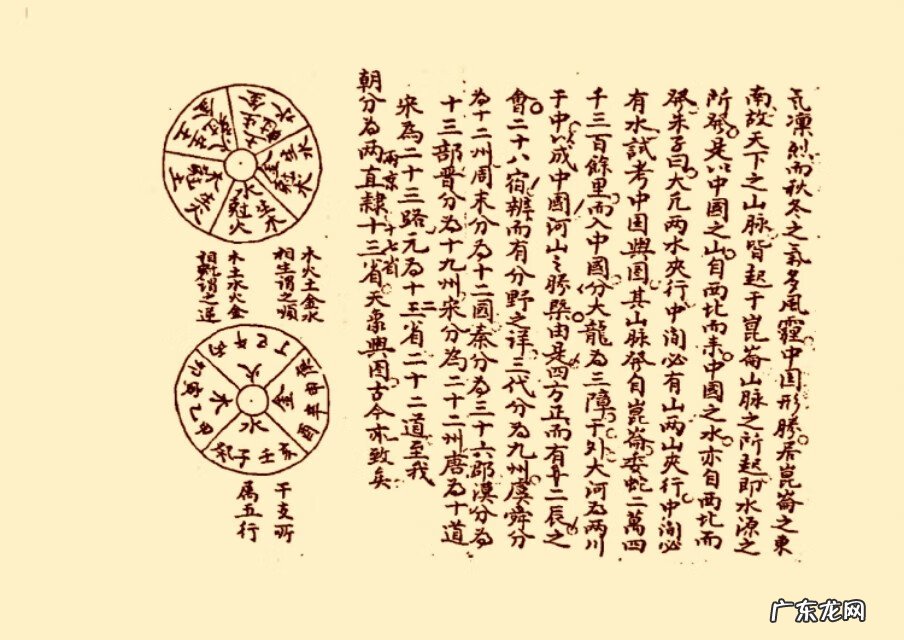 氣凜烈而秋冬之氣多風霾中国形勝居崑崙之東
南故天下之山脉皆起于崑崙山脉之所起即水源之
所發是以中國之山自西北而来中國之水亦自西北而
發朱子曰大凡两水夾行中间必有山两山夾行中间必
有水試考中国輿圖其山脉發自崑崙委蛇二萬四
千三百餘里而入中國分大龍為三障于外大河為两川
于中以成中國河山之勝槩由是四方正而有十二辰之
會二十八宿辨而有分野之詳三代分为九州虞舜分
為十二州周末分為十二國秦分為三十六郡漢分為
十三部晋分为十九州宋分為二十二州唐为十道
宋為二十三路元为十三省二十二道至我
朝分為两直隸十三省天象輿图古今亦致矣
两京十七省
木火土金水
相生謂之順
木土水火金
相尅謂之逆
水尅火
火
金
水
木
丁巳午丙
庚申辛酉
癸子壬亥
甲乙寅卯
干支所
属五行
广东龙网